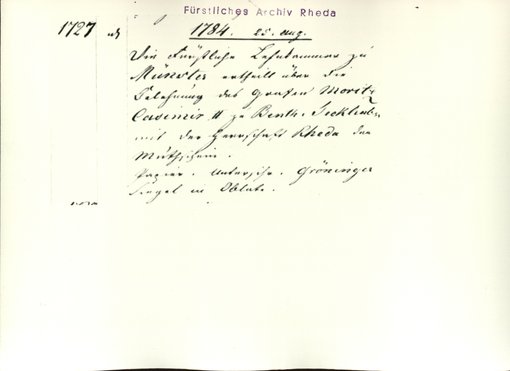 Fürstliches Archiv Rheda
1727
1784. 25. Aug.
Die Fürstliche Lehnkammer zu
Münster ertheilt über die
Belehnung des Grafen Moritz
Casimir II zu Benth. Tecklenb.
mit der Herrschaft Rheda den
Muthschein.
Papier. Unterschr. Gröninger
Siegel in Oblate.